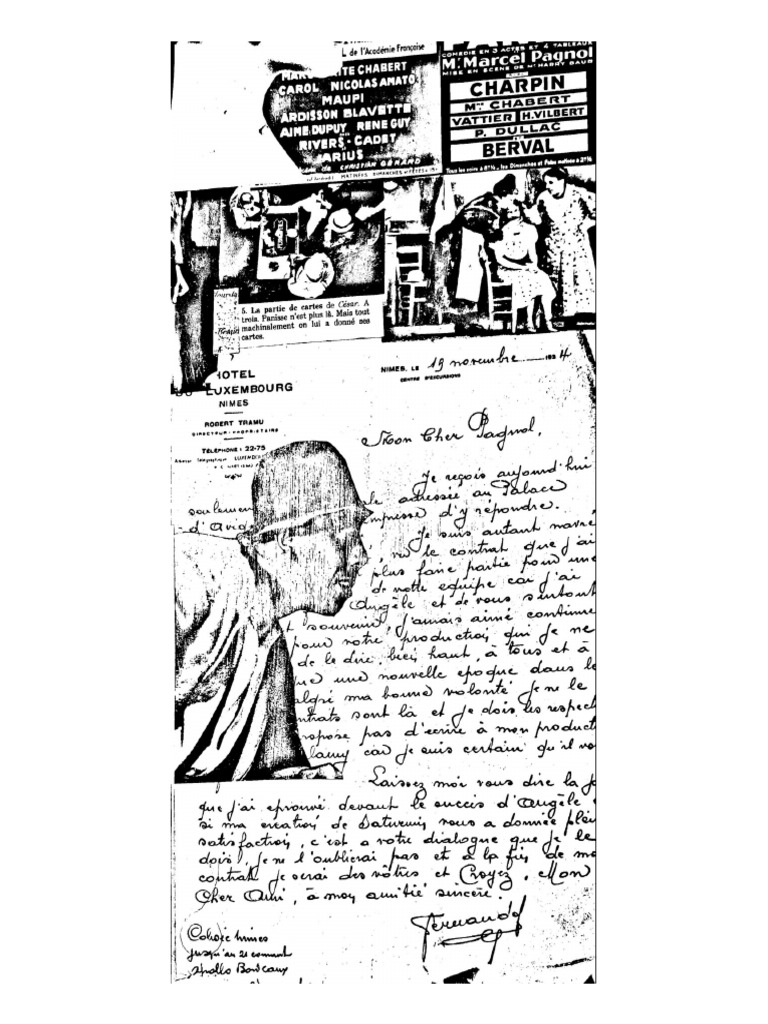 L de l'Académie Française
CHABERT
CAROL NICOLAS AMATO
MAUPI
ARDISSON BLAVETTE
AIMÉ DUPUY RENE GUY
RIVERS-CADET
ARIUS
de CHRISTIAN GÉRARD
COMÉDIE EN 3 ACTES ET 4 TABLEAUX
Mr. Marcel Pagnol
MISE EN SCÈNE DE
CHARPIN
Mme CHABERT
VATTIER H. VILBERT
P. DULLAC
BERVAL
Tous les soirs à 8h¾, les Dimanches et Fêtes matinée à
5. La partie de cartes de César. A
trois. Panisse n'est plus là. Mais tout
machinalement on lui a donné ses
cartes.
HOTEL
LUXEMBOURG
NIMES
ROBERT TRAMU
DIRECTEUR-PROPRIÉTAIRE
TÉLÉPHONE : 22-75
NIMES, LE 19 novembre 1934
CENTRE D'EXCURSIONS
Mon Cher Pagnol,
Je reçois aujourd'hui
seulement le adressée au Palace
d'Avig empresse d'y répondre.
Je suis autant navré
, vu le contrat que j'ai
plus faire partie pour une
de notre équipe car j'ai
Angèle et de vous surtout
souvenir, j'amais aimé continue
pour votre production qui je ne
de le dire, bien haut, à tous et à
une nouvelle epoque dans le
algré ma bonne volonté je ne le
ntrats sont là et je dois les respect
ropose pas d'écrire à mon product
car je suis certain qu'il vo
Laissez moi vous dire la jo
que j'ai eprouvé devant le succès d'Angèle
si ma création de Saturnin vous a donnée plein
satisfaction, c'est a votre dialogue que je le
dois, je ne l'oublierai pas et à la fin de mo
contrat je serai des vôtres et Croyez, Mon
Cher Ami, à mon amitié sincère.
Fernandel
nimes
jusqu'au 21 courant
Apollo Bordeaux